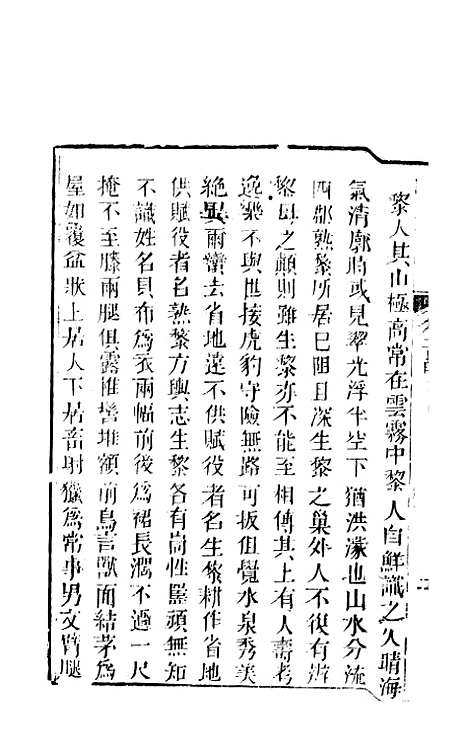 黎人其山極高常在雲霧中黎人自鮮識之久晴海
氣清廓時或見翠光浮半空下猶洪濛也山水分流
四郡熟黎所居已阻目深生黎之巢外人不復有辦
黎母之巔則雖生黎亦不能至相傳其上有人壽考
逸樂不與世接虎豹守險無路可扳但覺水泉秀美
絶異爾蠻去省地遠不供賦役者名生黎耕作省地
供賦役者名熟黎方輿志生黎各有峝性麤頑無知
不識姓名貝布爲衣兩幅前後爲裙長濶不過一尺
掩不至膝兩腿俱露椎髻堆額前鳥言獸面結茅爲
屋如覆盆狀上居人下居畜射獵爲常事男文臂腿